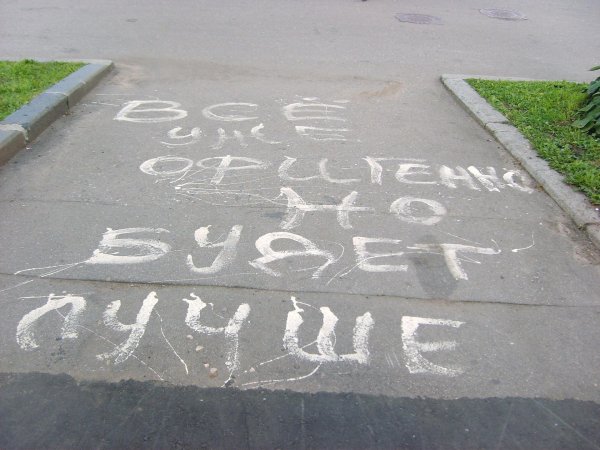 ВСЁ
УЖЕ
ОФИГЕННО
НО
БУДЕТ
ЛУЧШЕ